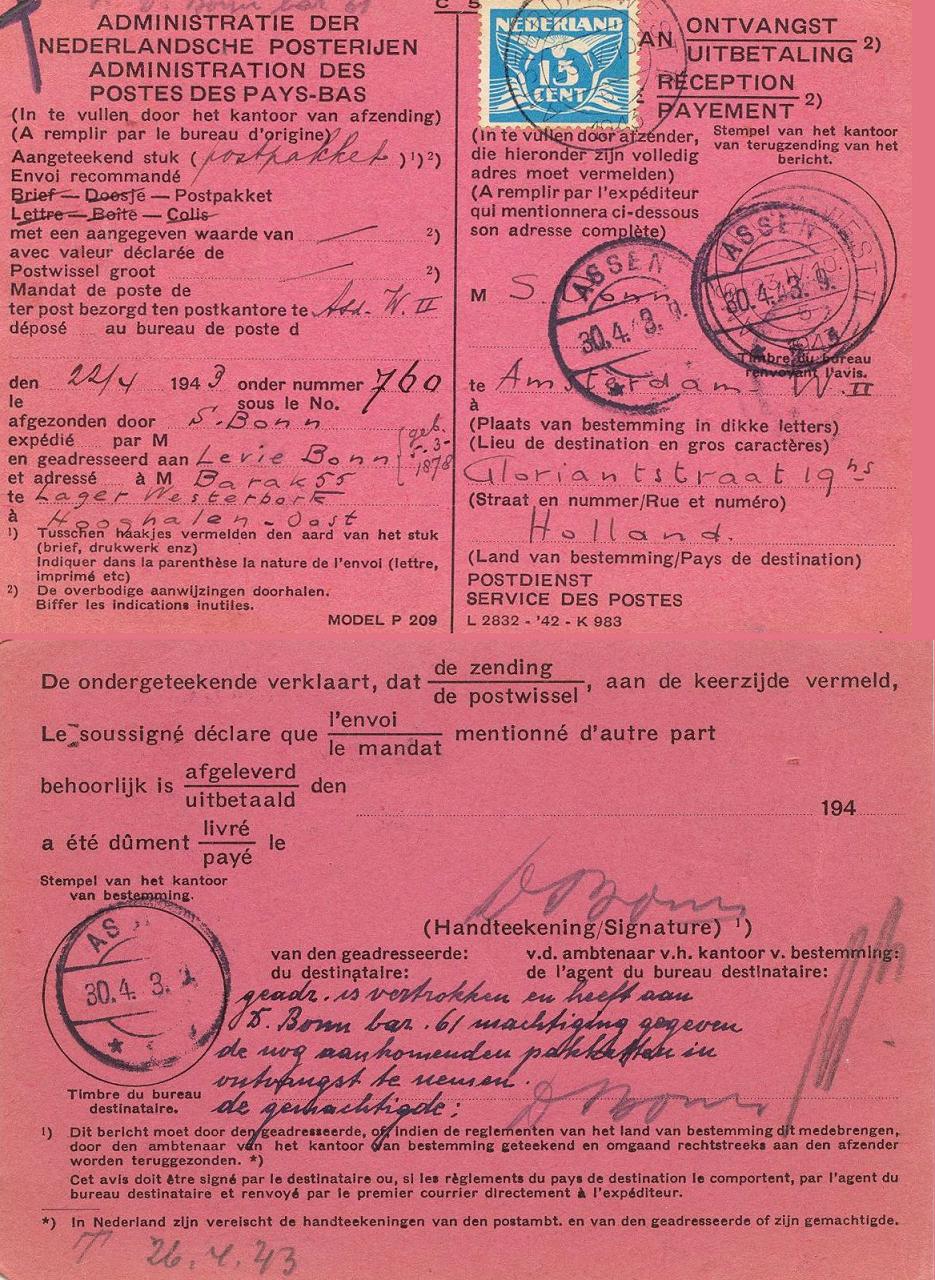 D. Bonn bar 61
ADMINISTRATIE DER
NEDERLANDSCHE POSTERIJEN
ADMINISTRATION DES
POSTES DES PAYS-BAS
(In te vullen door het kantoor van afzending)
(A remplir par le bureau d'origine)
Aangeteekend stuk (postpakket)¹)²)
Envoi recommandé
Brief — Doosje — Postpakket
Lettre — Boîte — Colis
met een aangegeven waarde van ²)
avec valeur déclarée de
Postwissel groot ²)
Mandat de poste de
ter post bezorgd ten postkantore te Asd. W. II
déposé au bureau de poste d
den 22/4 1943 onder nummer 760
le sous le No.
afgezonden door S. Bonn
expédié par M
en geadresseerd aan Levie Bonn geb.
et adressé à M Barak 55 5-3-
1878
te Lager Westerbork
à Hooghalen - Oost
¹) Tusschen haakjes vermelden den aard van het stuk
(brief, drukwerk enz)
Indiquer dans la parenthèse la nature de l'envoi (lettre,
imprimé etc)
²) De overbodige aanwijzingen doorhalen.
Biffer les indications inutiles.
MODEL P 209
C 5
NEDERLAND
15
CENT
AN ONTVANGST
UITBETALING ²)
RÉCEPTION
PAYEMENT ²)
(In te vullen door afzender,
die hieronder zijn volledig
adres moet vermelden)
(A remplir par l'expéditeur
qui mentionnera ci-dessous
son adresse complète)
Stempel van het kantoor
van terugzending van het
bericht.
ASSEN
30.4.3.9.
ASSEN
30.4.3.9.
WEST II
Timbre du bureau
renvoyant l'avis.
M S. Bonn
te Amsterdam W. II
à
(Plaats van bestemming in dikke letters)
(Lieu de destination en gros caractères)
Gloriantstraat 19 hs
(Straat en nummer/Rue et numéro)
Holland.
(Land van bestemming/Pays de destination)
POSTDIENST
SERVICE DES POSTES
L 2832 - '42 - K 983
De ondergeteekende verklaart, dat de zending / de postwissel, aan de keerzijde vermeld,
Le soussigné déclare que l'envoi / le mandat mentionné d'autre part
behoorlijk is afgeleverd / uitbetaald den 194
a été dûment livré / payé le
Stempel van het kantoor
van bestemming.
D Bonn
(Handteekening/Signature) ¹)
van den geadresseerde: v.d. ambtenaar v.h. kantoor v. bestemming:
du destinataire: de l'agent du bureau destinataire:
AS
30.4.3.
geadr. is vertrokken en heeft aan
D. Bonn bar. 61 machtiging gegeven
de nog aankomenden pakketten in
ontvangst te nemen.
de gemachtigde: D Bonn
Timbre du bureau
destinataire.
¹) Dit bericht moet door den geadresseerde, of, indien de reglementen van het land van bestemming dit medebrengen,
door den ambtenaar van het kantoor van bestemming geteekend en omgaand rechtstreeks aan den afzender
worden teruggezonden. *)
Cet avis doit être signé par le destinataire ou, si les règlements du pays de destination le comportent, par l'agent du
bureau destinataire et renvoyé par le premier courrier directement à l'expéditeur.
*) In Nederland zijn vereischt de handteekeningen van den postambt. en van den geadresseerde of zijn gemachtigde.
T 26.4.43